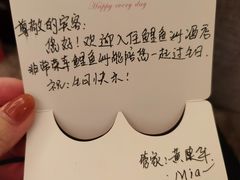 Happy every day
尊敬的宾客:
您好!欢迎入住鲤鱼洲酒店
非常荣幸鲤鱼洲能陪您一起过生日
祝:生日快乐!
管家:黄
Mia